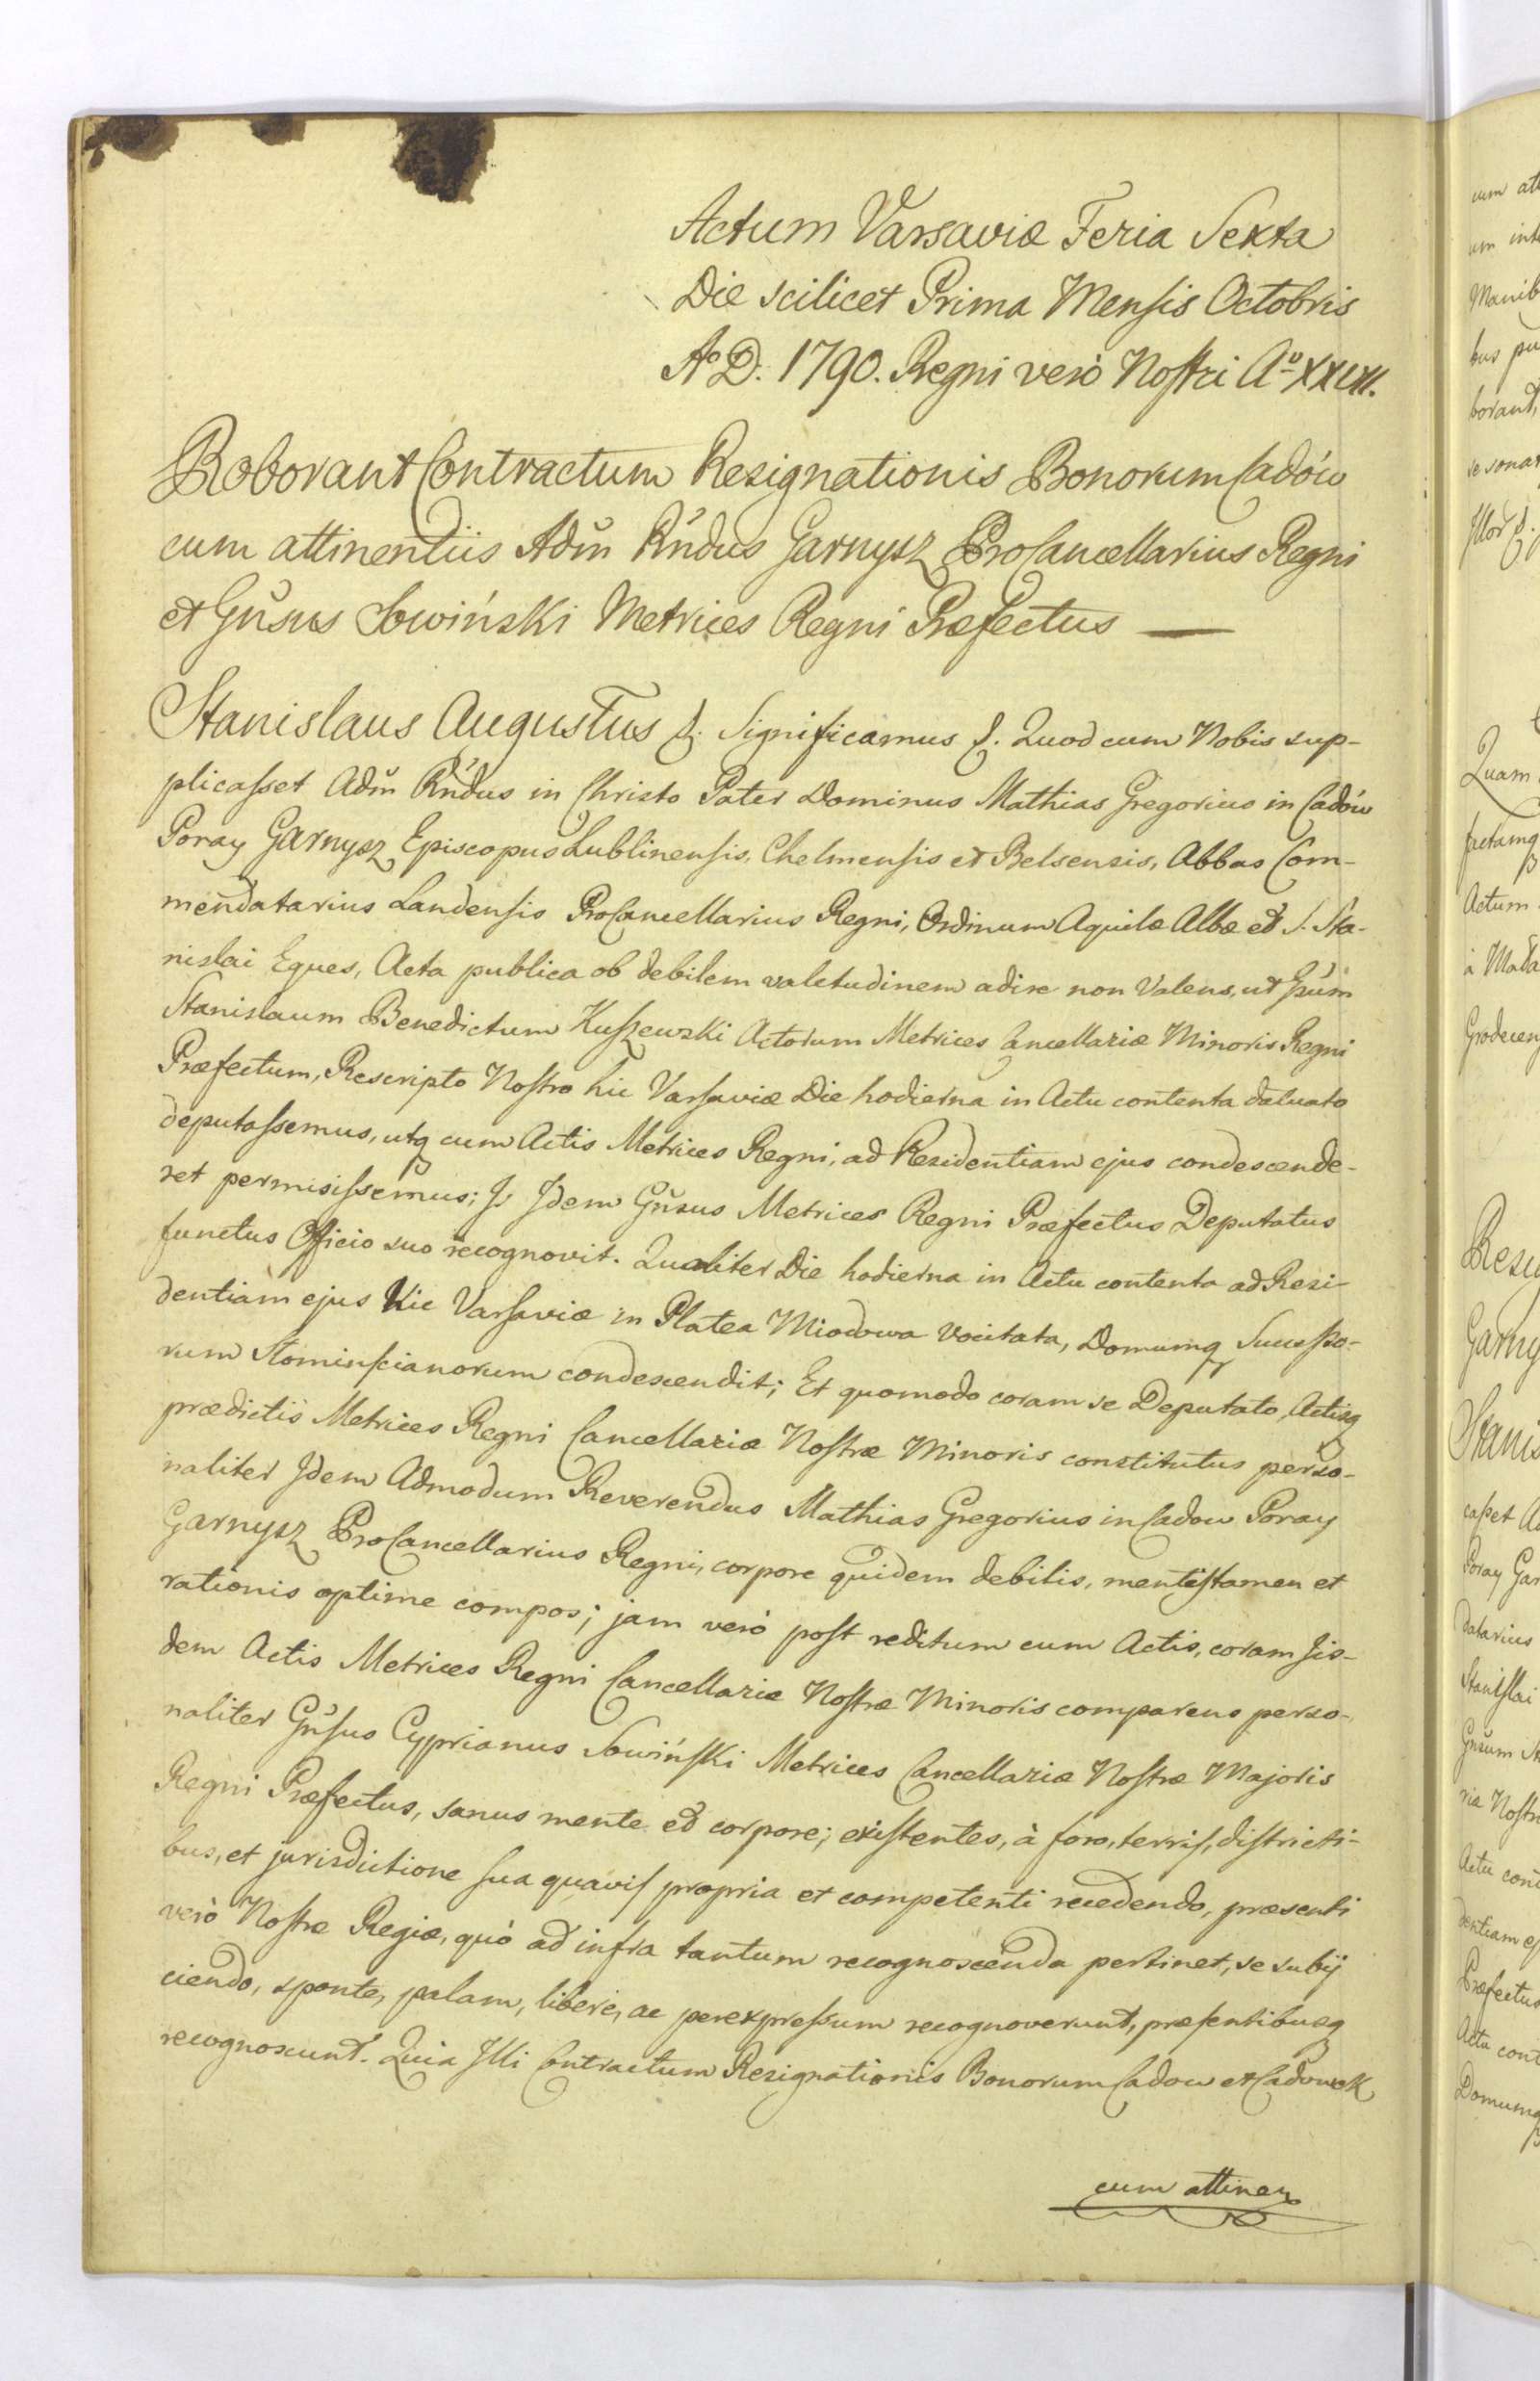 Actum Varsaviæ Feria Sexta
Die scilicet Prima Mensis Octobris
Aº D. 1790. Regni verò Nostri Aº
Roborant Contractum Resignationis Bonorum Cadów
cum attinentiis Adm̃ Rńdus Garnysz ProCancellarius Regni
et Gñsus Sowiński Metrices Regni Præfectus —
Stanislaus Augustus &. Significamus &. Quod cum Nobis sup-
plicasset Adm̃ Rñdus in Christo Pater Dominus Mathias Gregorius in Cadów
Poray Garnysz Episcopus Lublinensis, Chelmensis et Belsensis, Abbas Com-
mendatarius Landensis ProCancellarius Regni, Ordinum Aquilæ Albæ et S. Sta-
nislai Eques, Acta publica ob debilem valetudinem adire non Valens, ut Gsũm
Stanislaum Benedictum Kuszewski Actorum Metrices Cancellariæ Minoris Regni
Præfectum, Rescripto Nostro hic Varsaviæ Die hodierna in Actu contenta datuato
deputassemus, utq cum Actis Metrices Regni, ad Residentiam ejus condescende-
ret permisissemus; Is Idem Gñsus Metrices Regni Præfectus Deputatus
functus Officio suo recognovit. Qualiter Die hodierna in Actu contenta ad Resi-
dentiam ejus hic Varsaviæ in Platea Miodowa vocitata, Domumq Successo-
rum condescendit; Et quomodo coram se Deputato, Actisq
prædictis Metrices Regni Cancellariæ Nostræ Minoris constitutus perso-
naliter Idem Admodum Reverendus Mathias Gregorius in Cadow Poray
Garnysz ProCancellarius Regni, corpore quidem debilis, mentis tamen et
rationis optime compos; jam verò post reditum cum Actis, coram Iis-
dem Actis Metrices Regni Cancellariæ Nostræ Minoris comparens perso-
naliter Gñsus Cyprianus Sowiński Metrices Cancellariæ Nostræ Majoris
Regni Præfectus, sanus mente et corpore; existentes, à foro, terris, districti-
bus, et jurisdictione sua quavis propria et competenti recedendo, præsenti
verò Nostræ Regiæ, quò ad infra tantum recognoscenda pertinet, se subij
ciendo, sponte, palam, libere, ac per expressum recognoverunt, præsentibusq
recognoscunt. Quia Illi Contractum Resignationis Bonorum Cadow et Cadowek
cum attinen